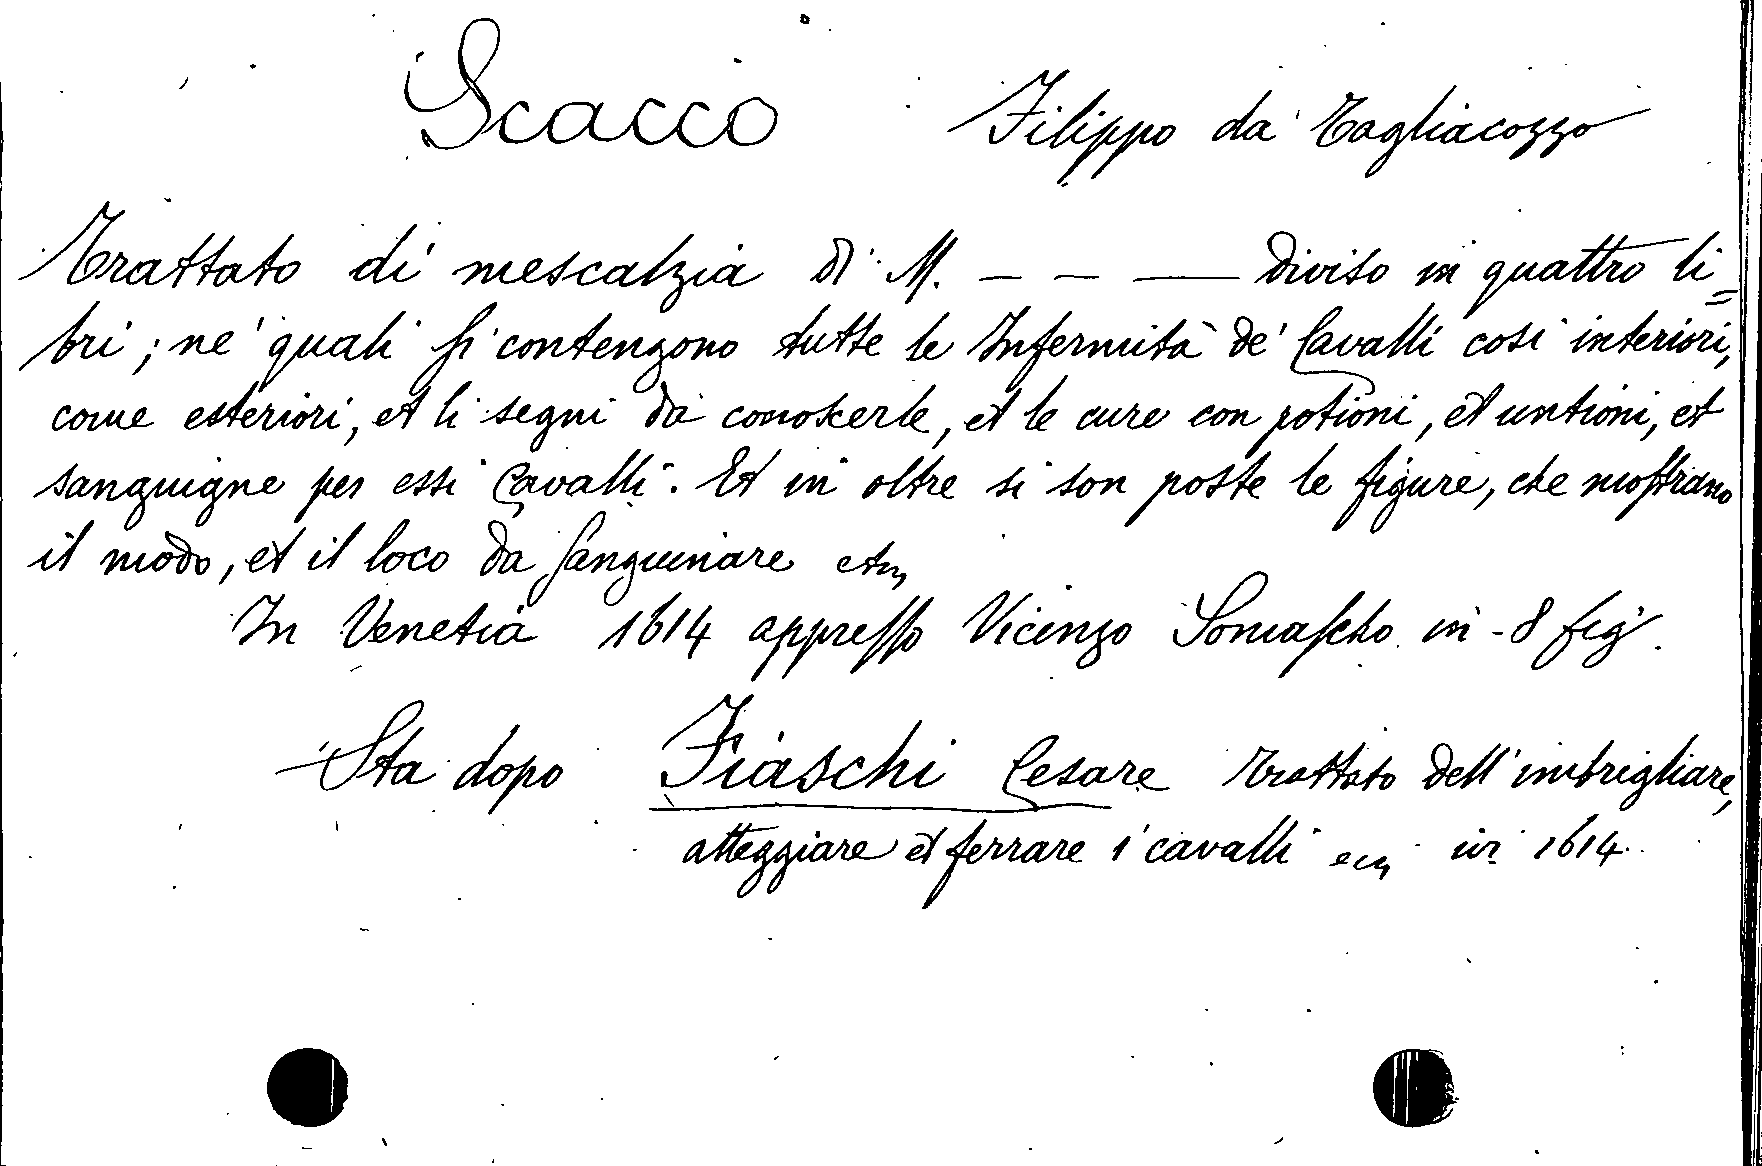 Scacco Filippo da Tagliacozzo
Trattato di mescalzia di M. — — — diviso in quattro li=
bri; ne' quali si contengono tutte le Infermità de' Cavalli così interiori,
come esteriori, et li segni da conoscerle, et le cure con potioni, et untioni, et
sanguigne per essi Cavalli. Et in oltre si son poste le figure, che mostrano
il modo, et il loco da sanguinare etc
In Venetia 1614 appresso Vicenzo Somascho in-8 fig.
Sta dopo Fiaschi Cesare Trattato dell'imbrigliare,
atteggiare et ferrare i cavalli ecc in 1614.